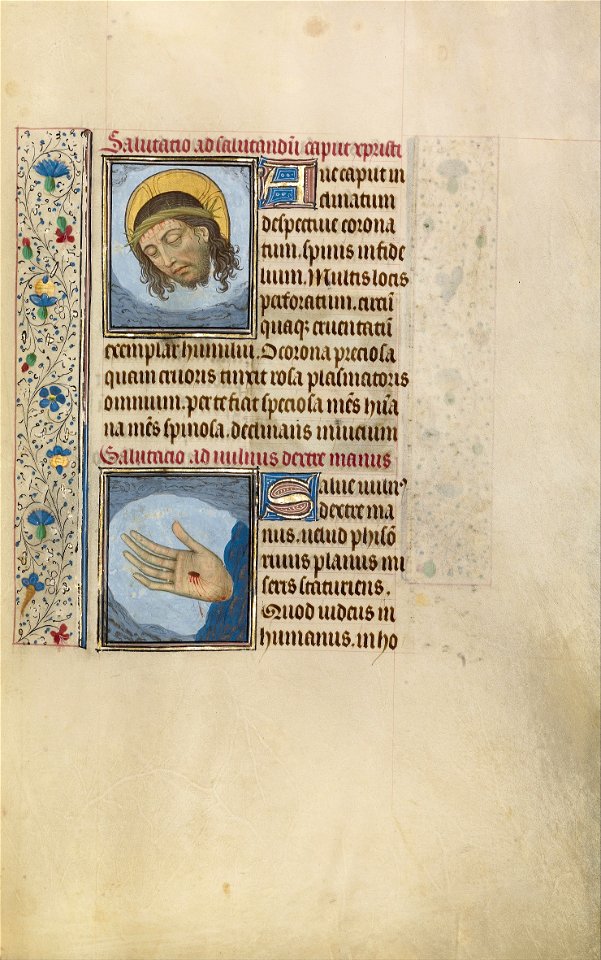 Salutacio ad salutandū caput xpristi
Aue caput in
clinatum
despectiue corona
tum. spinis infide
lium. Multis locis
perforatum. circū
quaq; cruentatū
exemplar humilii. O corona preciosa
quam cruoris tinxit rosa plasmatoris
omnium. per te fiat speciosa mēs hūa
na mēs spinosa. declinans in uicium
Salutacio ad uulnus dextre manus
Salue uuln⁹
dextre ma
nus. uelud
rumis planus mi
seris scaturiens.
Quod uideus in
humanus. in ho